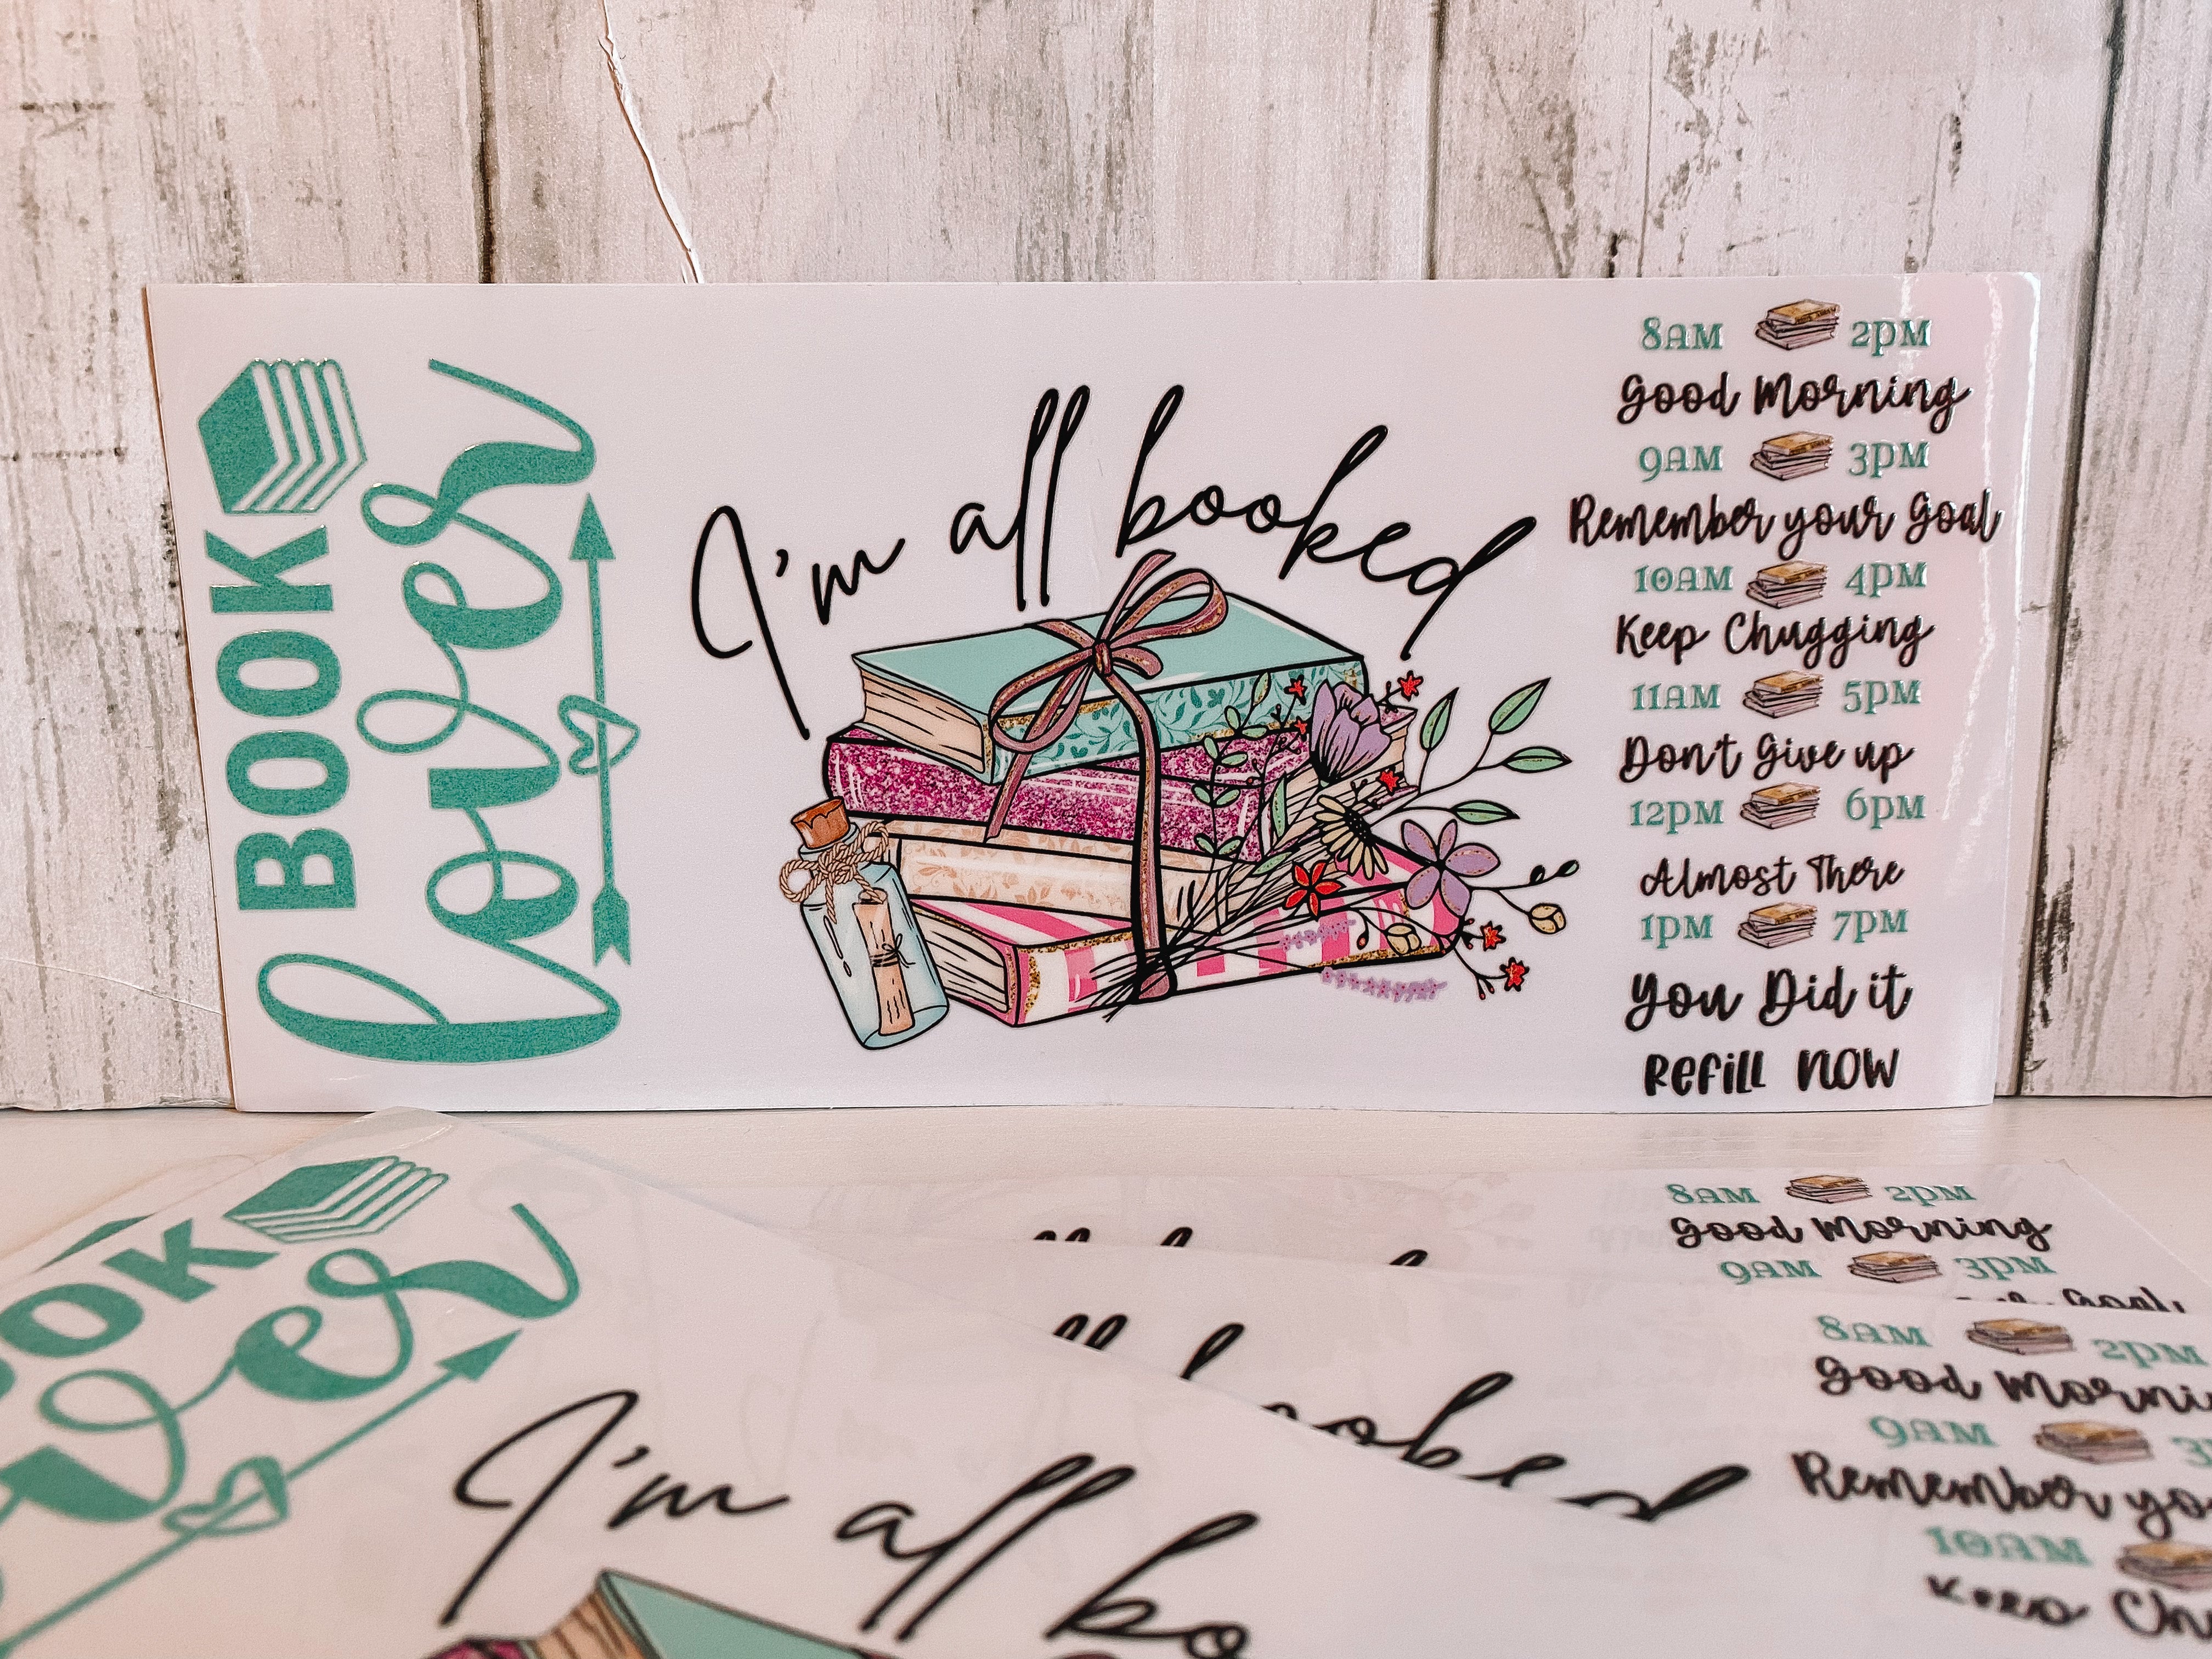 BOOK
Lover
I'm all booked
8AM 2PM
Good Morning
9AM 3PM
Remember your Goal
10AM 4PM
Keep Chugging
11AM 5PM
Don't Give up
12PM 6PM
Almost There
1PM 7PM
You Did it
Refill NOW
8AM 2PM
Good Morning
9AM 3PM
Goal
8AM 2PM
Good Morni
9AM 3
Remember yo
10AM
Keep Chu
OOK
ver
I'm all bo
ll booked